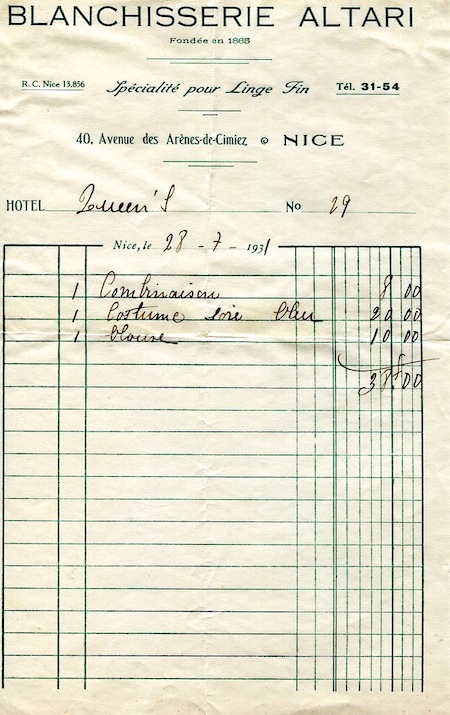 BLANCHISSERIE ALTARI
Fondée en 1865
R. C. Nice 13.856
Spécialité pour Linge Fin
Tél. 31-54
40, Avenue des Arènes-de-Cimiez NICE
HOTEL Queen'S No 29
Nice, le 28 - 7 - 1931
1 Combinaison 8 00
1 Costume soie bleu 20 00
1 blouse 10 00
38f.00